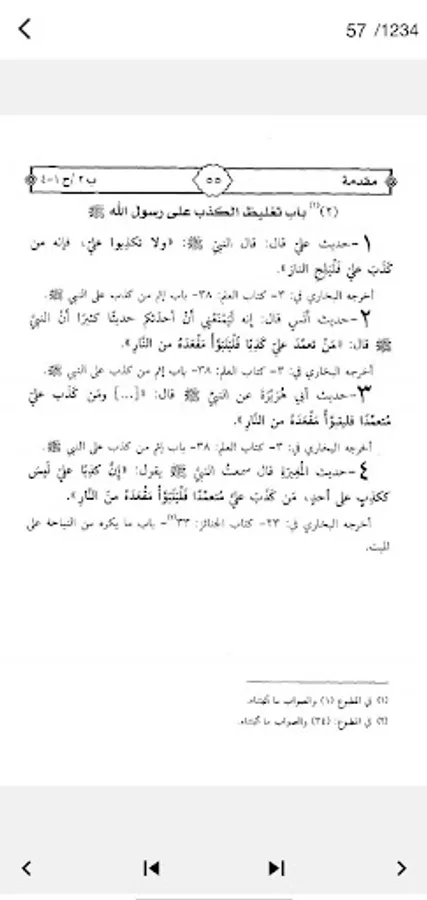 57 /1234
مقدمة ٥٥ ب ٢/ح ١-٤
(٢)(١) باب تغليظ الكذب على رسول الله ﷺ
١-حديث عليّ قال: قال النبيّ ﷺ: «ولا تكذبوا عليّ، فإنه من
كَذَبَ عليَّ فَلْيَلِجِ النارَ».
أخرجه البخاري في: ٣- كتاب العلم: ٣٨- باب إثم من كذب على النبي ﷺ.
٢-حديث أنَسٍ قال: إنه لَيَمْنَعُنِي أنْ أُحدّثكم حديثًا كثيرًا أنّ النبيَّ
ﷺ قال: «مَنْ تعمَّدَ عليَّ كَذِبًا فَلْيَتَبَوَّأْ مَقْعَدَهُ من النَّارِ».
أخرجه البخاري في: ٣- كتاب العلم: ٣٨- باب إثم من كذب على النبي ﷺ.
٣-حديث أبي هُرَيْرَةَ عن النبيّ ﷺ قال: «[...] ومَن كَذَبَ عليَّ
مُتعمِّدًا فليتبوَّأْ مَقْعَدَهُ من النَّارِ».
أخرجه البخاري في: ٣- كتاب العلم: ٣٨- باب إثم من كذب على النبي ﷺ.
٤-حديث الْمُغِيرَةِ قال سمعتُ النبيَّ ﷺ يقول: «إنَّ كَذِبًا عليَّ لَيْسَ
ككَذِبٍ على أحدٍ، مَن كَذَبَ عليَّ مُتعمِّدًا فَلْيَتَبَوَّأْ مَقْعَدَهُ منَ النَّارِ».
أخرجه البخاري في: ٢٣- كتاب الجنائز: ٣٣(٢)- باب ما يكره من النياحة على
الميت.
(١) في المطبوع (١) والصواب ما أثبتناه.
(٢) في المطبوع: (٣٤) والصواب ما أثبتناه.